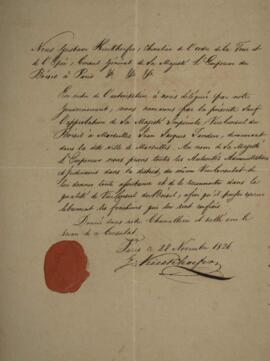 Nous Gustave          , Chevalier de l'ordre de la Tour et
de l'Epée, Consul Général de Sa Majesté l'Empereur du
Brésil à Paris
En vertu de l'autorisation à nous déléguée par notre
Gouvernement, nous nommons par la présente sauf
l'approbation de Sa Majesté Impériale Vice Consul du
Brésil à Marseille Jean Jacques        , demeurant
dans la dite ville de Marseille. Au nom de Sa Majesté
l'Empereur nous prions toutes les Autorités Administratives
et Judiciaires dans le district du même Vice Consulat de
lui donner toute assistance et de le reconnaître dans la
qualité de Vice Consul du Brésil, afin qu'il puisse exercer
librement les fonctions qui lui sont confiées
Donné dans notre Chancellerie et scellé avec le
sceau de ce Consulat.
Paris ce 22 Novembre